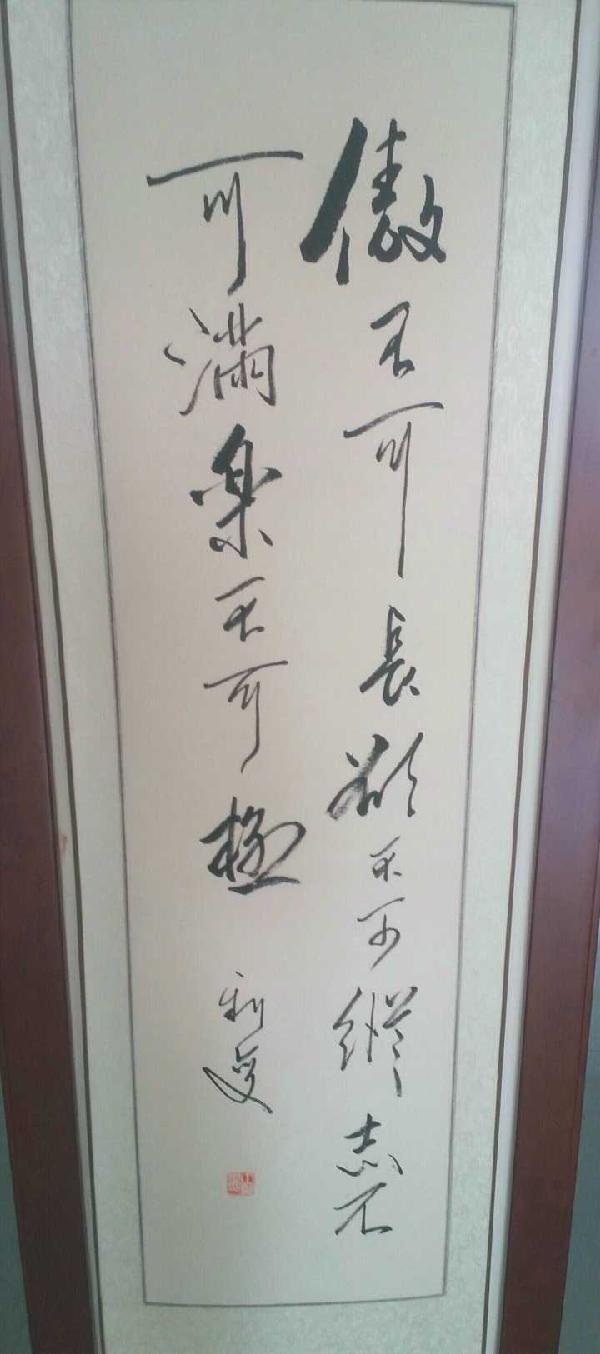 傲不可長欲不可縱志不
可滿樂不可極